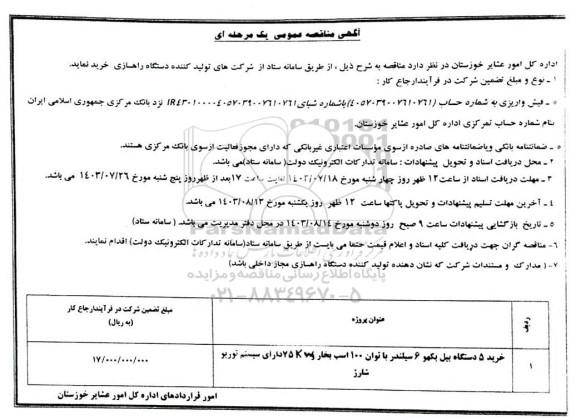 آگهی مناقصه عمومی یک مرحله ای
اداره کل امور عشایر خوزستان در نظر دارد مناقصه به شرح ذیل ، از طریق سامانه ستاد از شرکت های تولید کننده دستگاه راهسازی خرید نماید.
۱ - نوع و مبلغ تضمین شرکت در فرآیندارجاع کار :
فیش واریزی به شماره حساب (۴۰۵۷۰۳۹۰۰۷۶۱۰۷۶۱) باشماره شبای IR۴۳۰۱۰۰۰۰۴۰۵۷۰۳۹۰۰۷۶۱۰۷۶۱ نزد بانک مرکزی جمهوری اسلامی ایران
بنام شماره حساب تمرکزی اداره کل امور عشایر خوزستان.
ضمانتنامه بانکی ویاضمانتنامه های صادره ازسوی مؤسسات اعتباری غیربانکی که دارای مجوزفعالیت ازسوی بانک مرکزی هستند.
۲ - محل دریافت اسناد و تحویل پیشنهادات : سامانه تدارکات الکترونیک دولت( سامانه ستاد)می باشد.
۳ - مهلت دریافت اسناد از ساعت ۱۲ ظهر روز چهارشنبه مورخ ۱۴۰۳/۰۷/۱۸ لغایت ساعت ۱۷بعد از ظهرروز پنج شنبه مورخ ۱۴۰۳/۰۷/۲۶ می باشد.
۴ - آخرین مهلت تسلیم پیشنهادات و تحویل پاکتها ساعت ۱۲ ظهر روز یکشنبه مورخ ۱۴۰۳/۰۸/۱۳ می باشد.
۵ - تاریخ بازگشایی پیشنهادات ساعت ۹ صبح روز دوشنبه مورخ ۱۴۰۳/۰۸/۱۴ در محل دفتر مدیریت می باشد. ( سامانه ستاد)
۶- مناقصه گران جهت دریافت کلیه اسناد و اعلام قیمت حتما می بایست از طریق سامانه ستاد(سامانه تدارکات الکترونیک دولت) اقدام نمایند.
۷- ( مدارک و مستندات شرکت که نشان دهنده تولید کننده دستگاه راهسازی مجاز داخلی باشد)
پایگاه اطلاع رسانی مناقصه و مزایده
۰۲۱-۸۸۳۴۹۶۷۰-۵
ردیف
عنوان پروژه
مبلغ تضمین شرکت در فرآیندارجاع کار
(به ریال)
۱
خرید ۵ دستگاه بیل بکهو ۶ سیلندر با توان ۱۰۰ اسب بخار ۷۵Kwدارای سیستم توربو
شارژ
۱۷/۰۰۰/۰۰۰/۰۰۰
امور قراردادهای اداره کل امور عشایر خوزستان